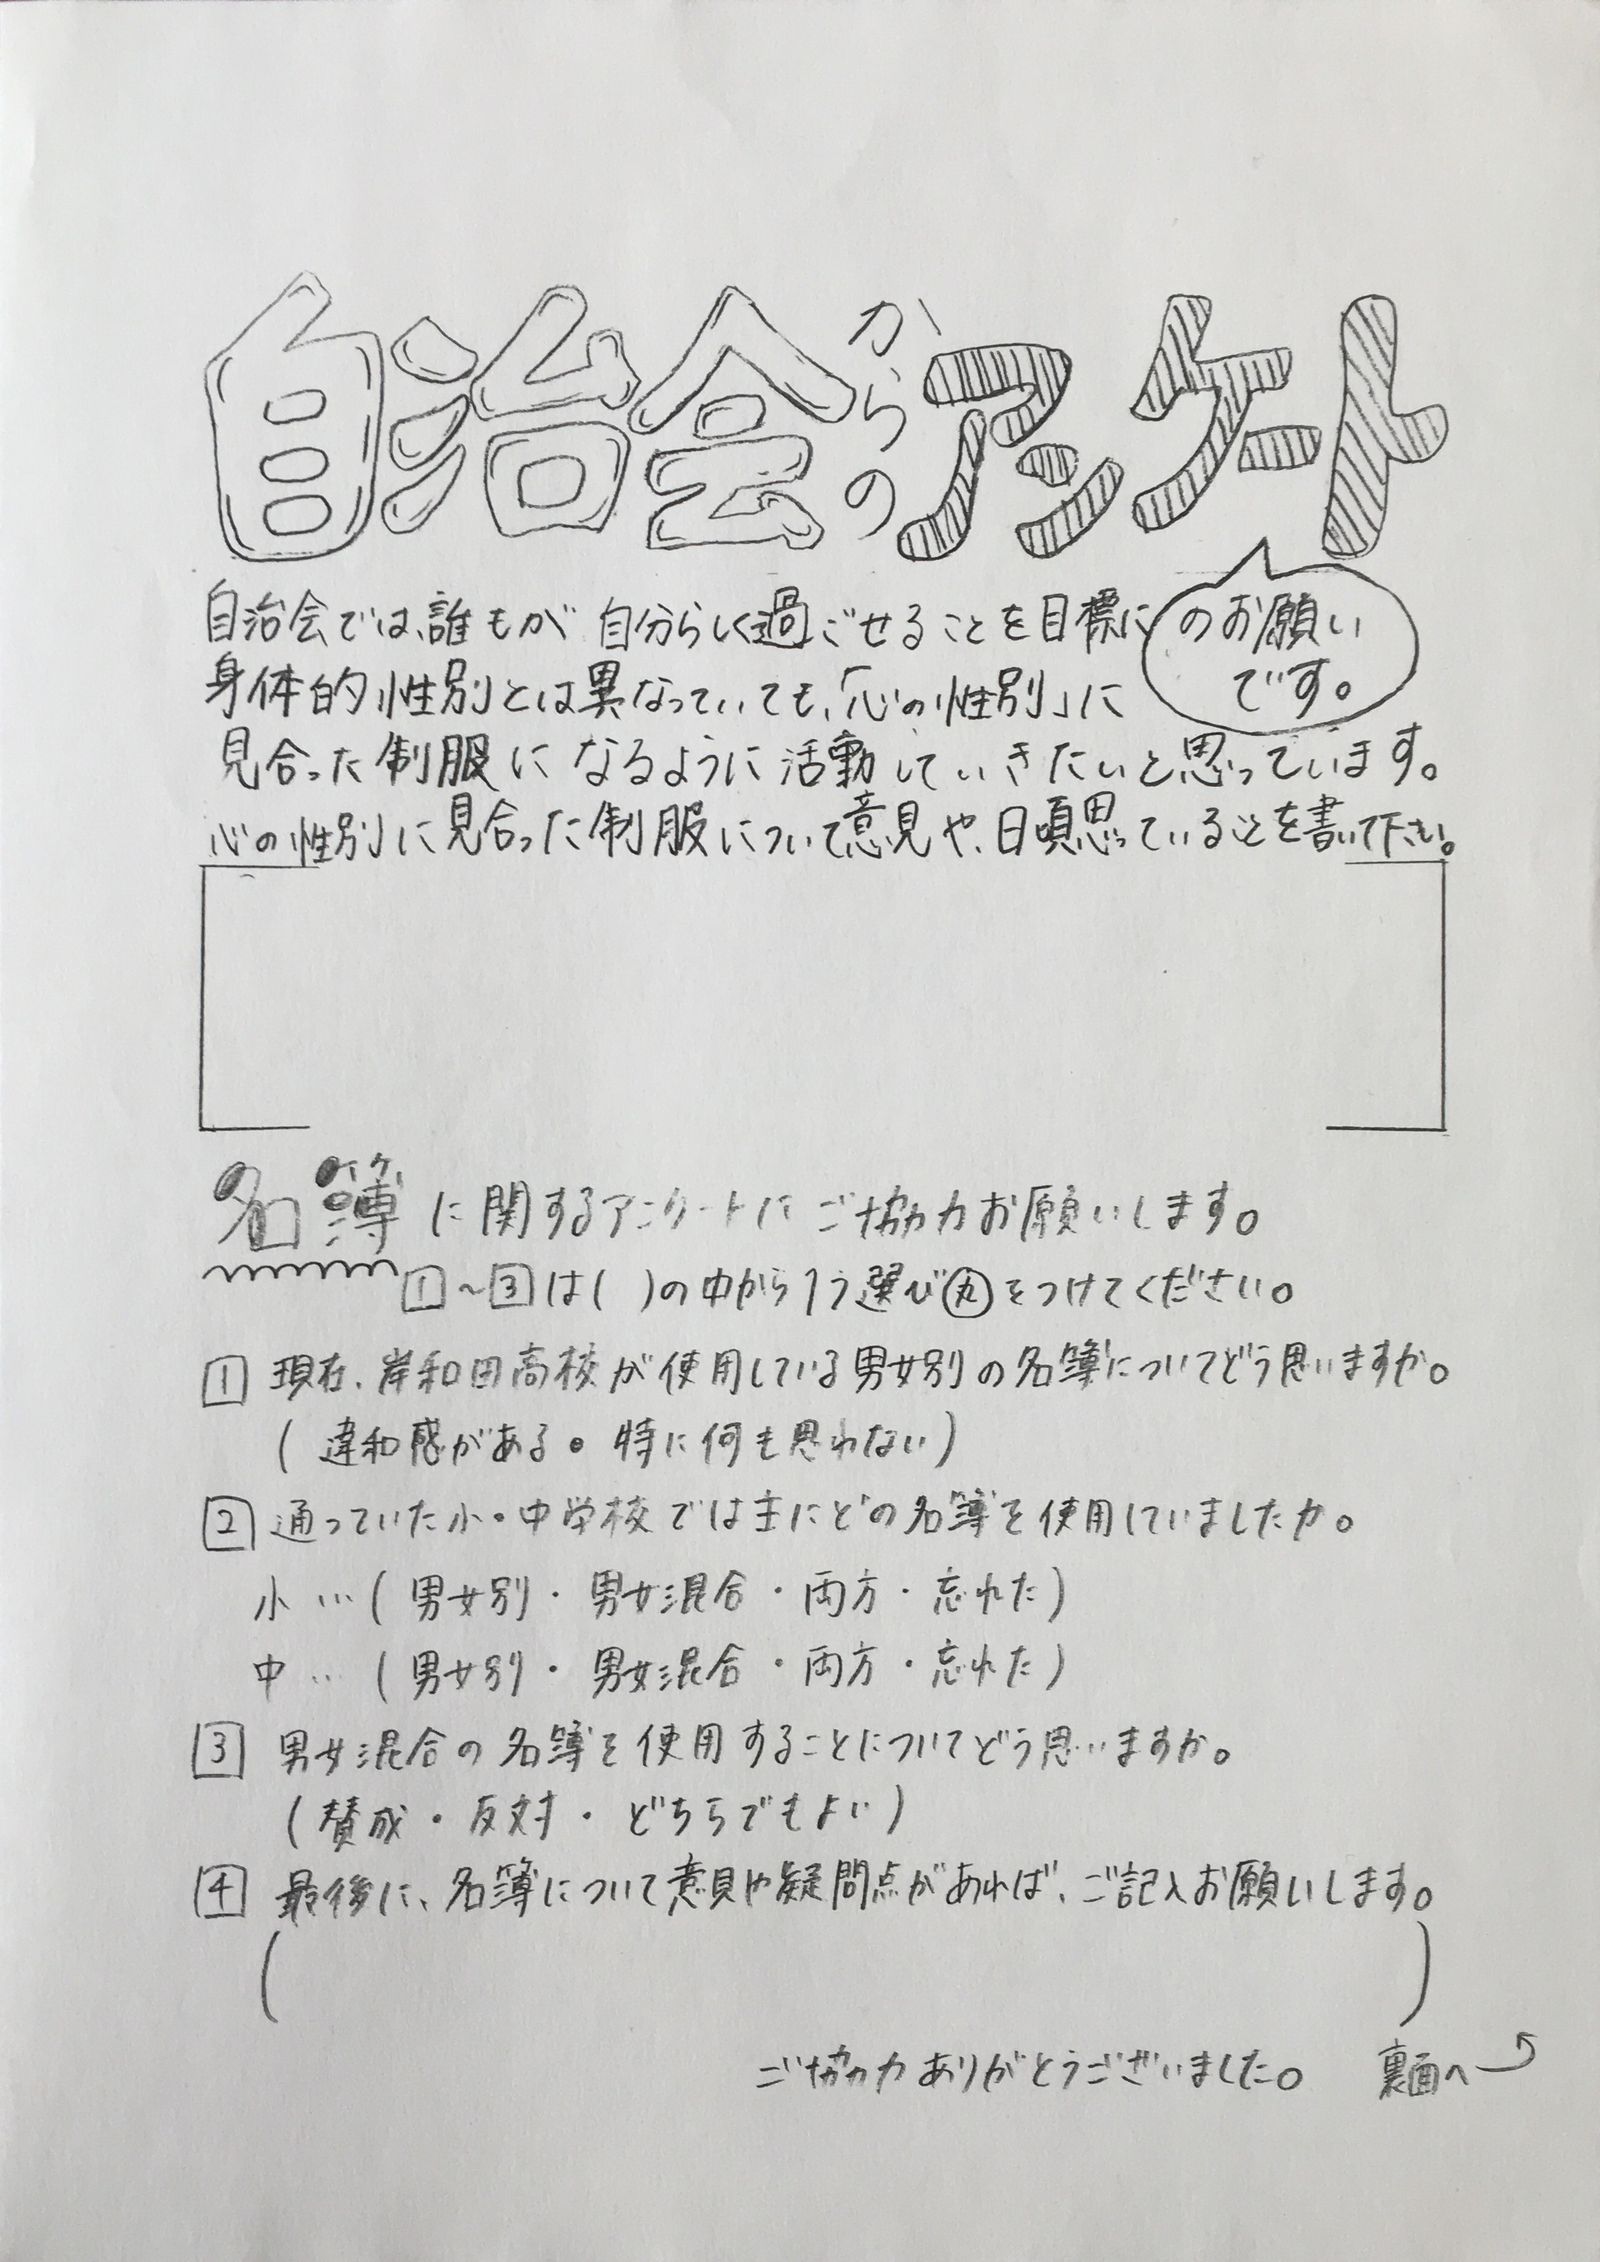 自治会からのアンケート
のお願い
です。
自治会では、誰もが自分らしく過ごせることを目標に
身体的性別とは異なっていても、「心の性別」に
見合った制服になるように活動していきたいと思っています。
心の性別に見合った制服について意見や、日頃思っていることを書いて下さい。
名簿に関するアンケートにご協力お願いします。
1～3は( )の中から1つ選び丸をつけてください。
1 現在、岸和田高校が使用している男女別の名簿についてどう思いますか。
(違和感がある。特に何も思わない)
2 通っていた小・中学校では主にどの名簿を使用していましたか。
小…(男女別・男女混合・両方・忘れた)
中…(男女別・男女混合・両方・忘れた)
3 男女混合の名簿を使用することについてどう思いますか。
(賛成・反対・どちらでもよい)
4 最後に、名簿について意見や疑問点があれば、ご記入お願いします。
( )
ご協力ありがとうございました。
裏面へ